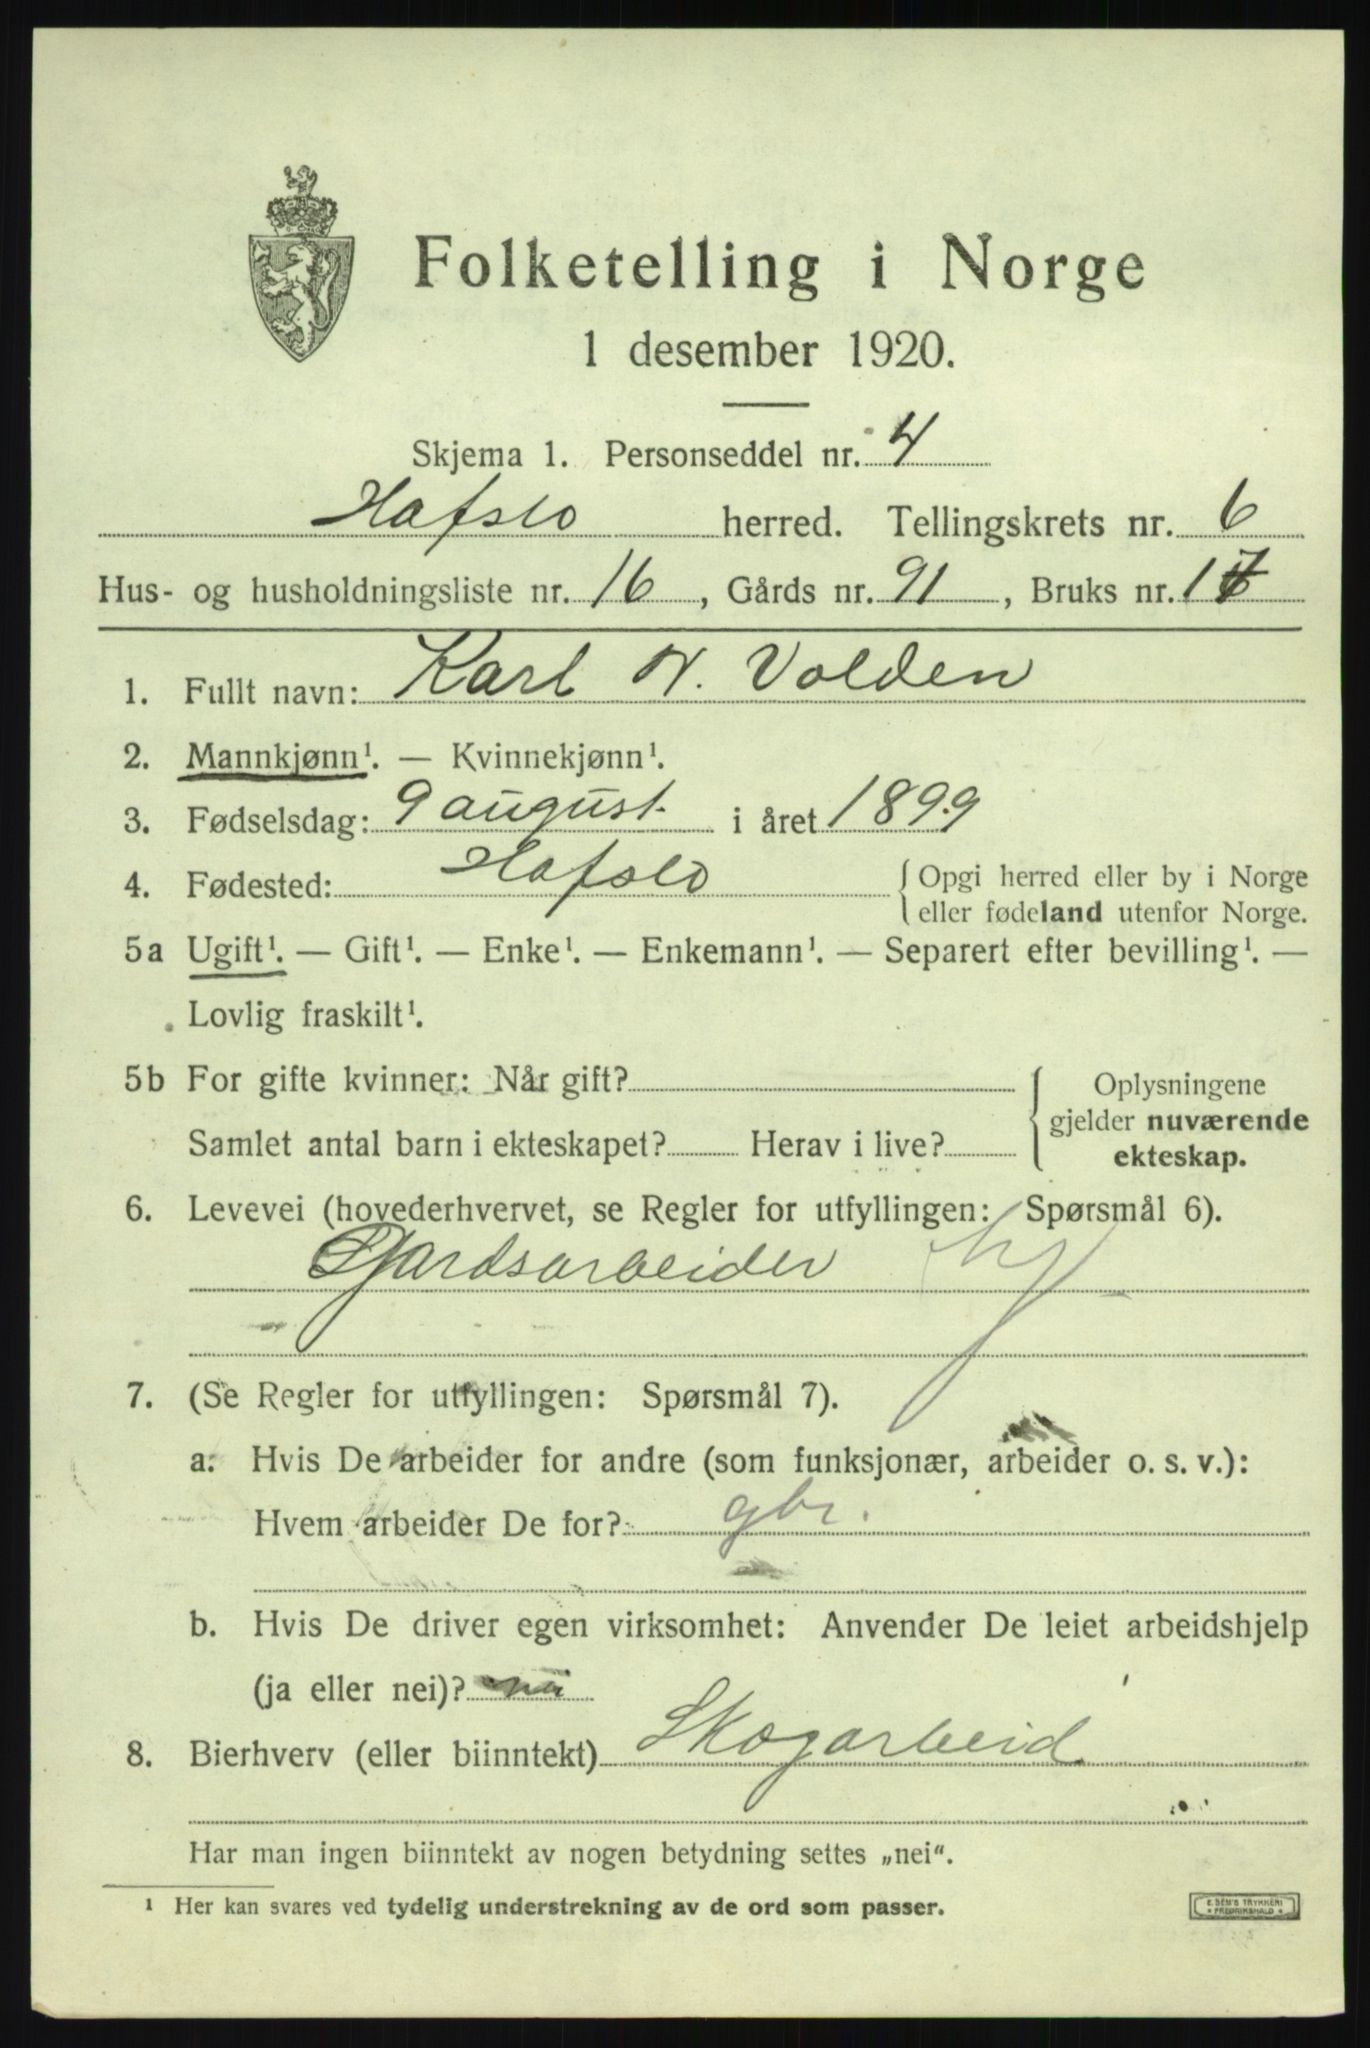 Folketelling i Norge
1 desember 1920.
Skjema 1. Personseddel nr. 4
Hafslo herred. Tellingskrets nr. 6
Hus- og husholdningsliste nr. 16, Gårds nr. 91, Bruks nr. 17
1. Fullt navn: Karl N. Volden
2. Mannkjønn¹. — Kvinnekjønn¹.
3. Fødselsdag: 9 august i året 1899
4. Fødested: Hafslo {Opgi herred eller by i Norge
eller fødeland utenfor Norge.
5a Ugift¹. — Gift¹. — Enke¹. — Enkemann¹. — Separert efter bevilling¹. —
Lovlig fraskilt¹.
5b For gifte kvinner: Når gift?
Samlet antal barn i ekteskapet? Herav i live?
{Oplysningene
gjelder nuværende
ekteskap.
6. Levevei (hovederhvervet, se Regler for utfyllingen: Spørsmål 6).
Gardsarbeider
7. (Se Regler for utfyllingen: Spørsmål 7).
a. Hvis De arbeider for andre (som funksjonær, arbeider o. s. v.):
Hvem arbeider De for? gbr.
b. Hvis De driver egen virksomhet: Anvender De leiet arbeidshjelp
(ja eller nei)? nei
8. Bierhverv (eller biinntekt) Skogarbeid
Har man ingen biinntekt av nogen betydning settes „nei".
¹ Her kan svares ved tydelig understrekning av de ord som passer.
E. SEM'S TRYKKERI
* FREDRIKSHALD *